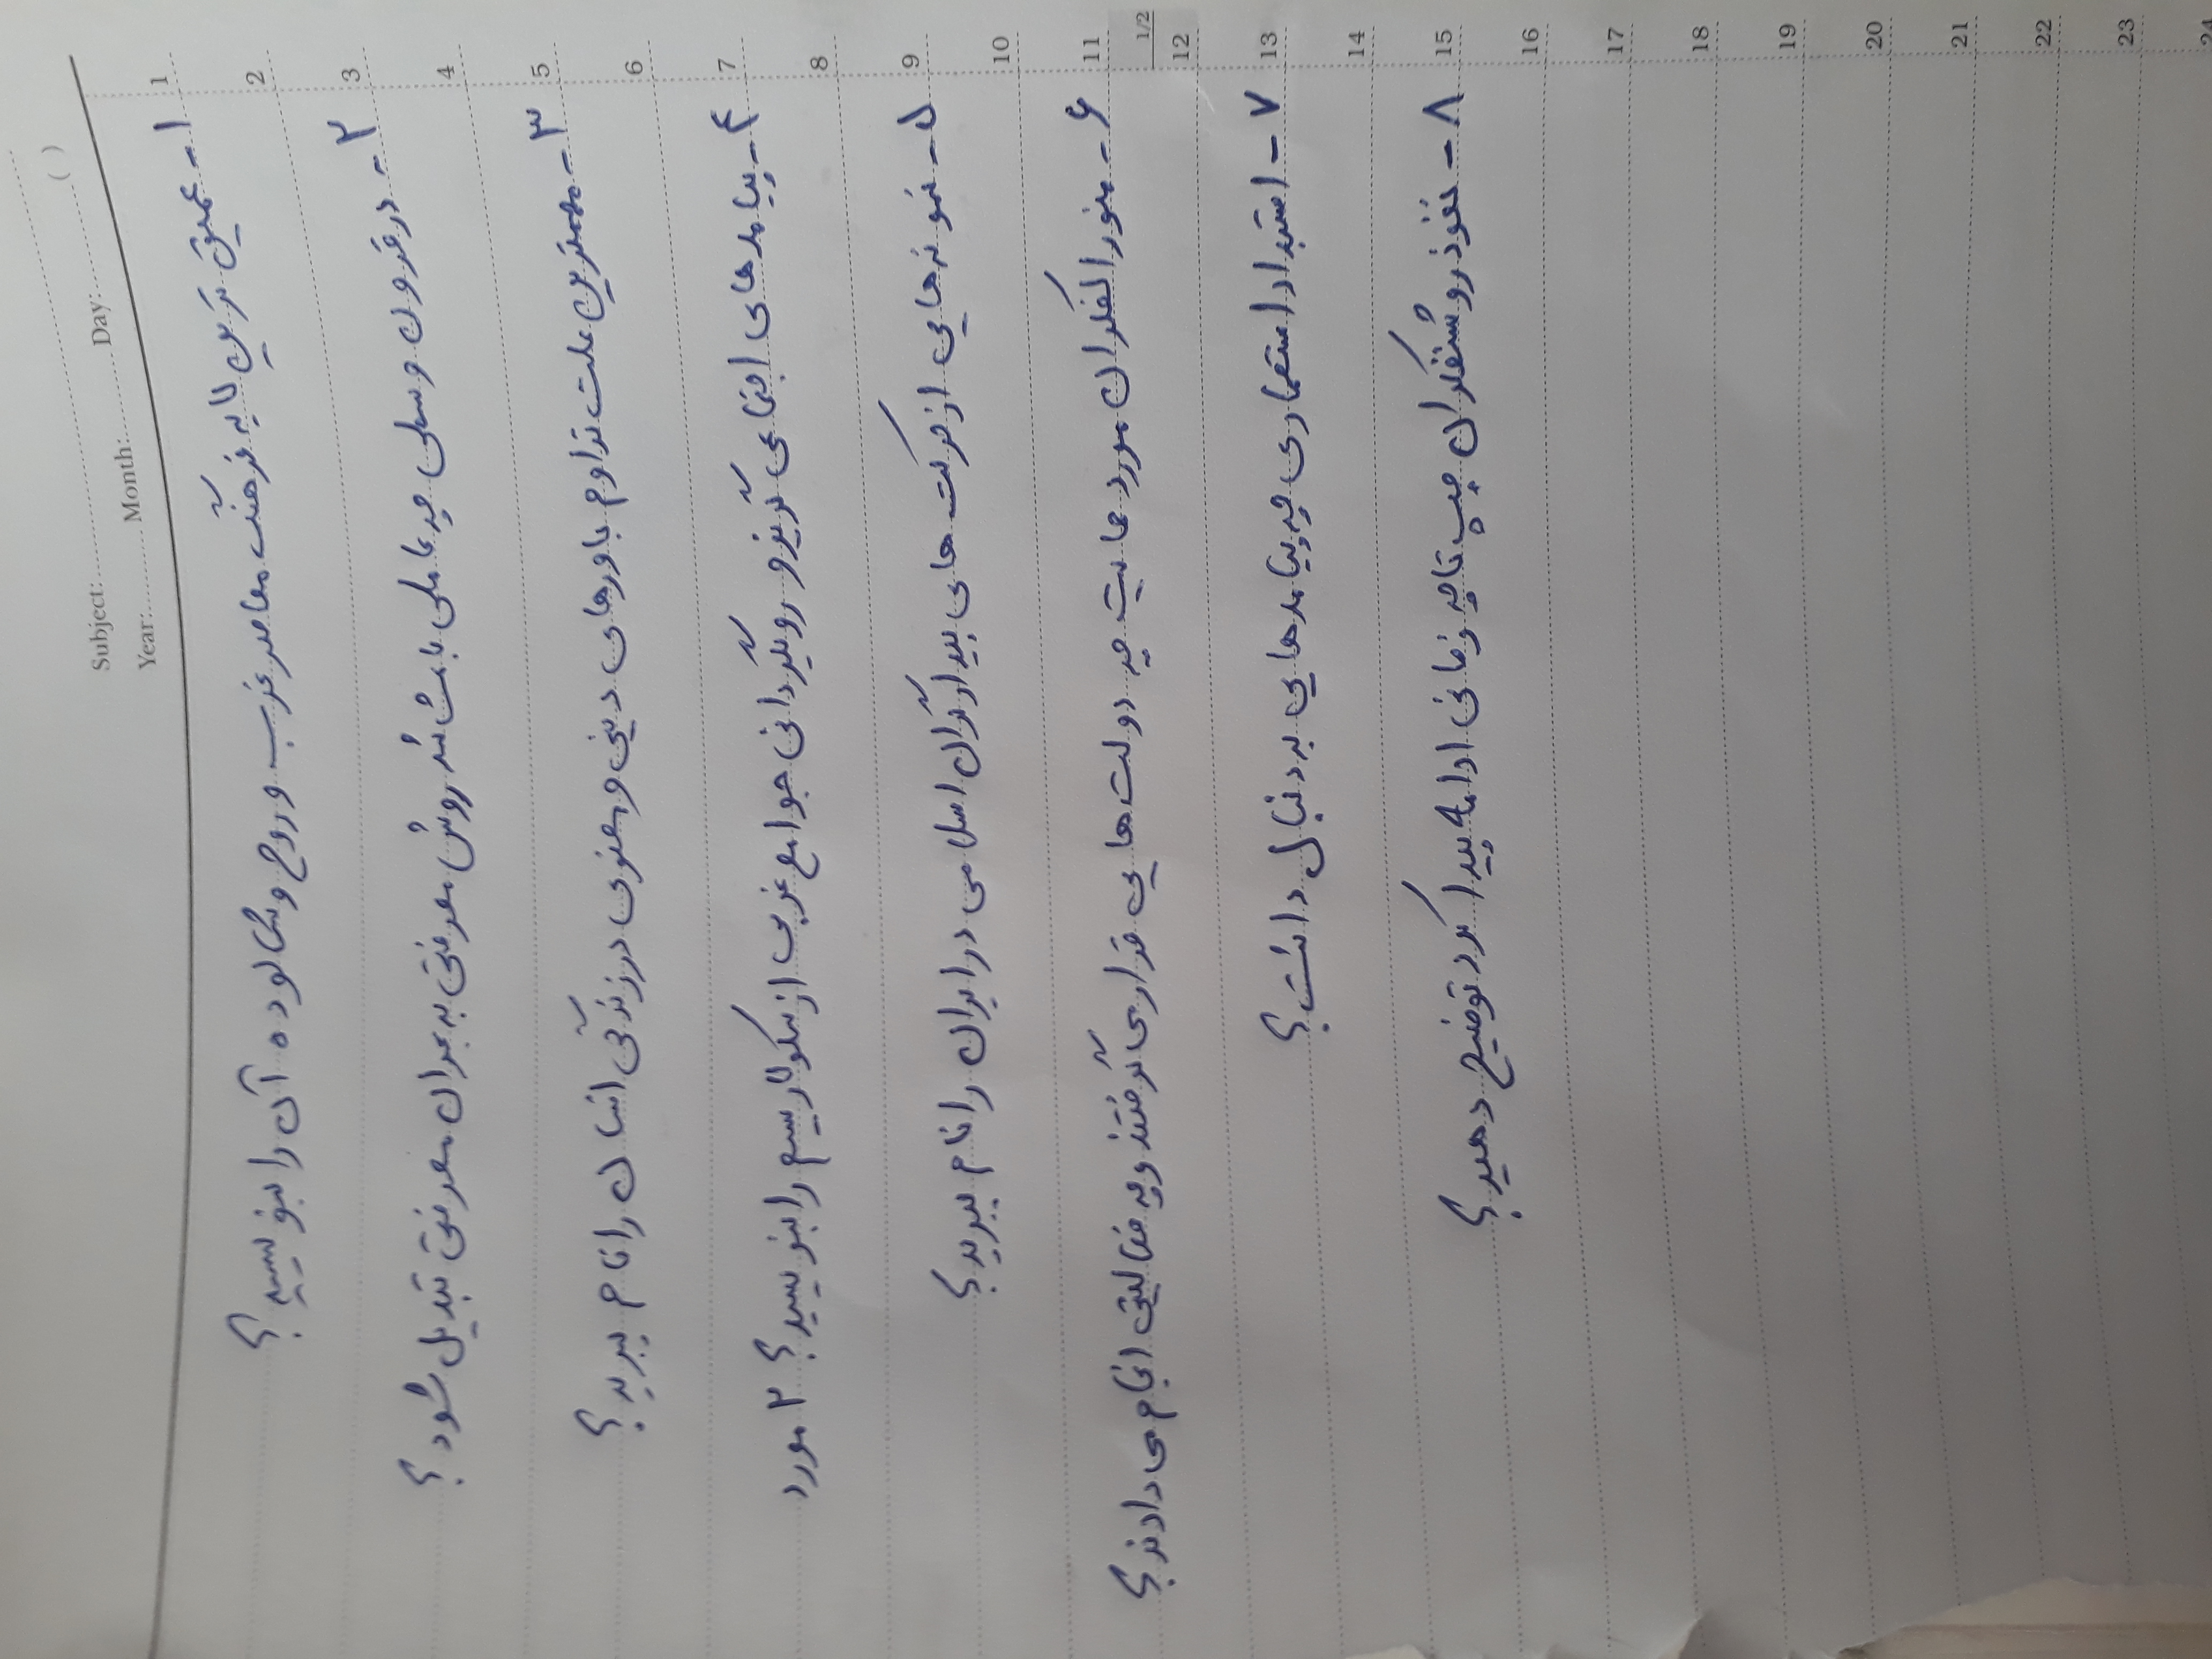 Subject:
Year: Month: Day: ( )
1
۱- عمیق ترین لایه فرهنگ معاصر غرب و روح و شالوده آن را بنویسید؟
2
3
۲- در قرون وسطی چه عاملی باعث شد روش معرفتی به بحران معرفتی تبدیل شود؟
4
5
۳- مهمترین علت تداوم باورهای دینی و معنوی در زندگی انسان را نام ببرید؟
6
7
۴- پیامدهای اجتماعی گریز و رویگردانی جوامع غربی از سکولاریسم را بنویسید؟ ۲ مورد
8
9
۵- نمونه هایی از حرکت های بیدارگران اسلامی در ایران را نام ببرید؟
10
11
۶- منورالفکران مورد حمایت چه دولت هایی قرار می گرفتند و چه فعالیتی انجام می دادند؟
1/2
12
13
۷- استبداد استعماری چه پیامدهایی به دنبال داشت؟
14
15
۸- نفوذ روشنفکران چپ تا چه زمانی ادامه پیدا کرد توضیح دهید؟
16
17
18
19
20
21
22
23
24